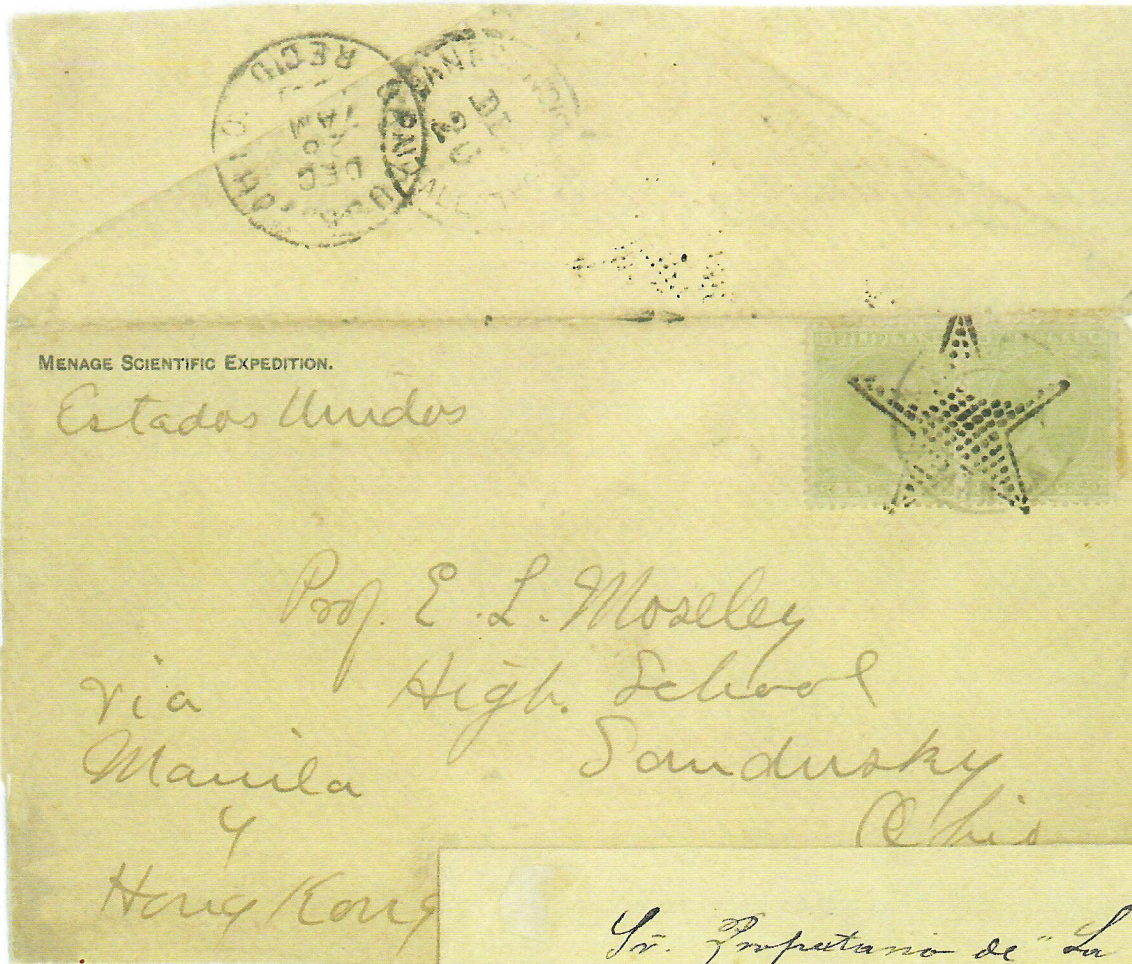 REC'D
7 AM
DEC
OHIO
MENAGE SCIENTIFIC EXPEDITION.
Estados Unidos
FILIPINAS
Prof. E. L. Moseley
High. School
Sandusky
Ohio
via
Manila
y
Hong Kong
Sr. Propietario de "La